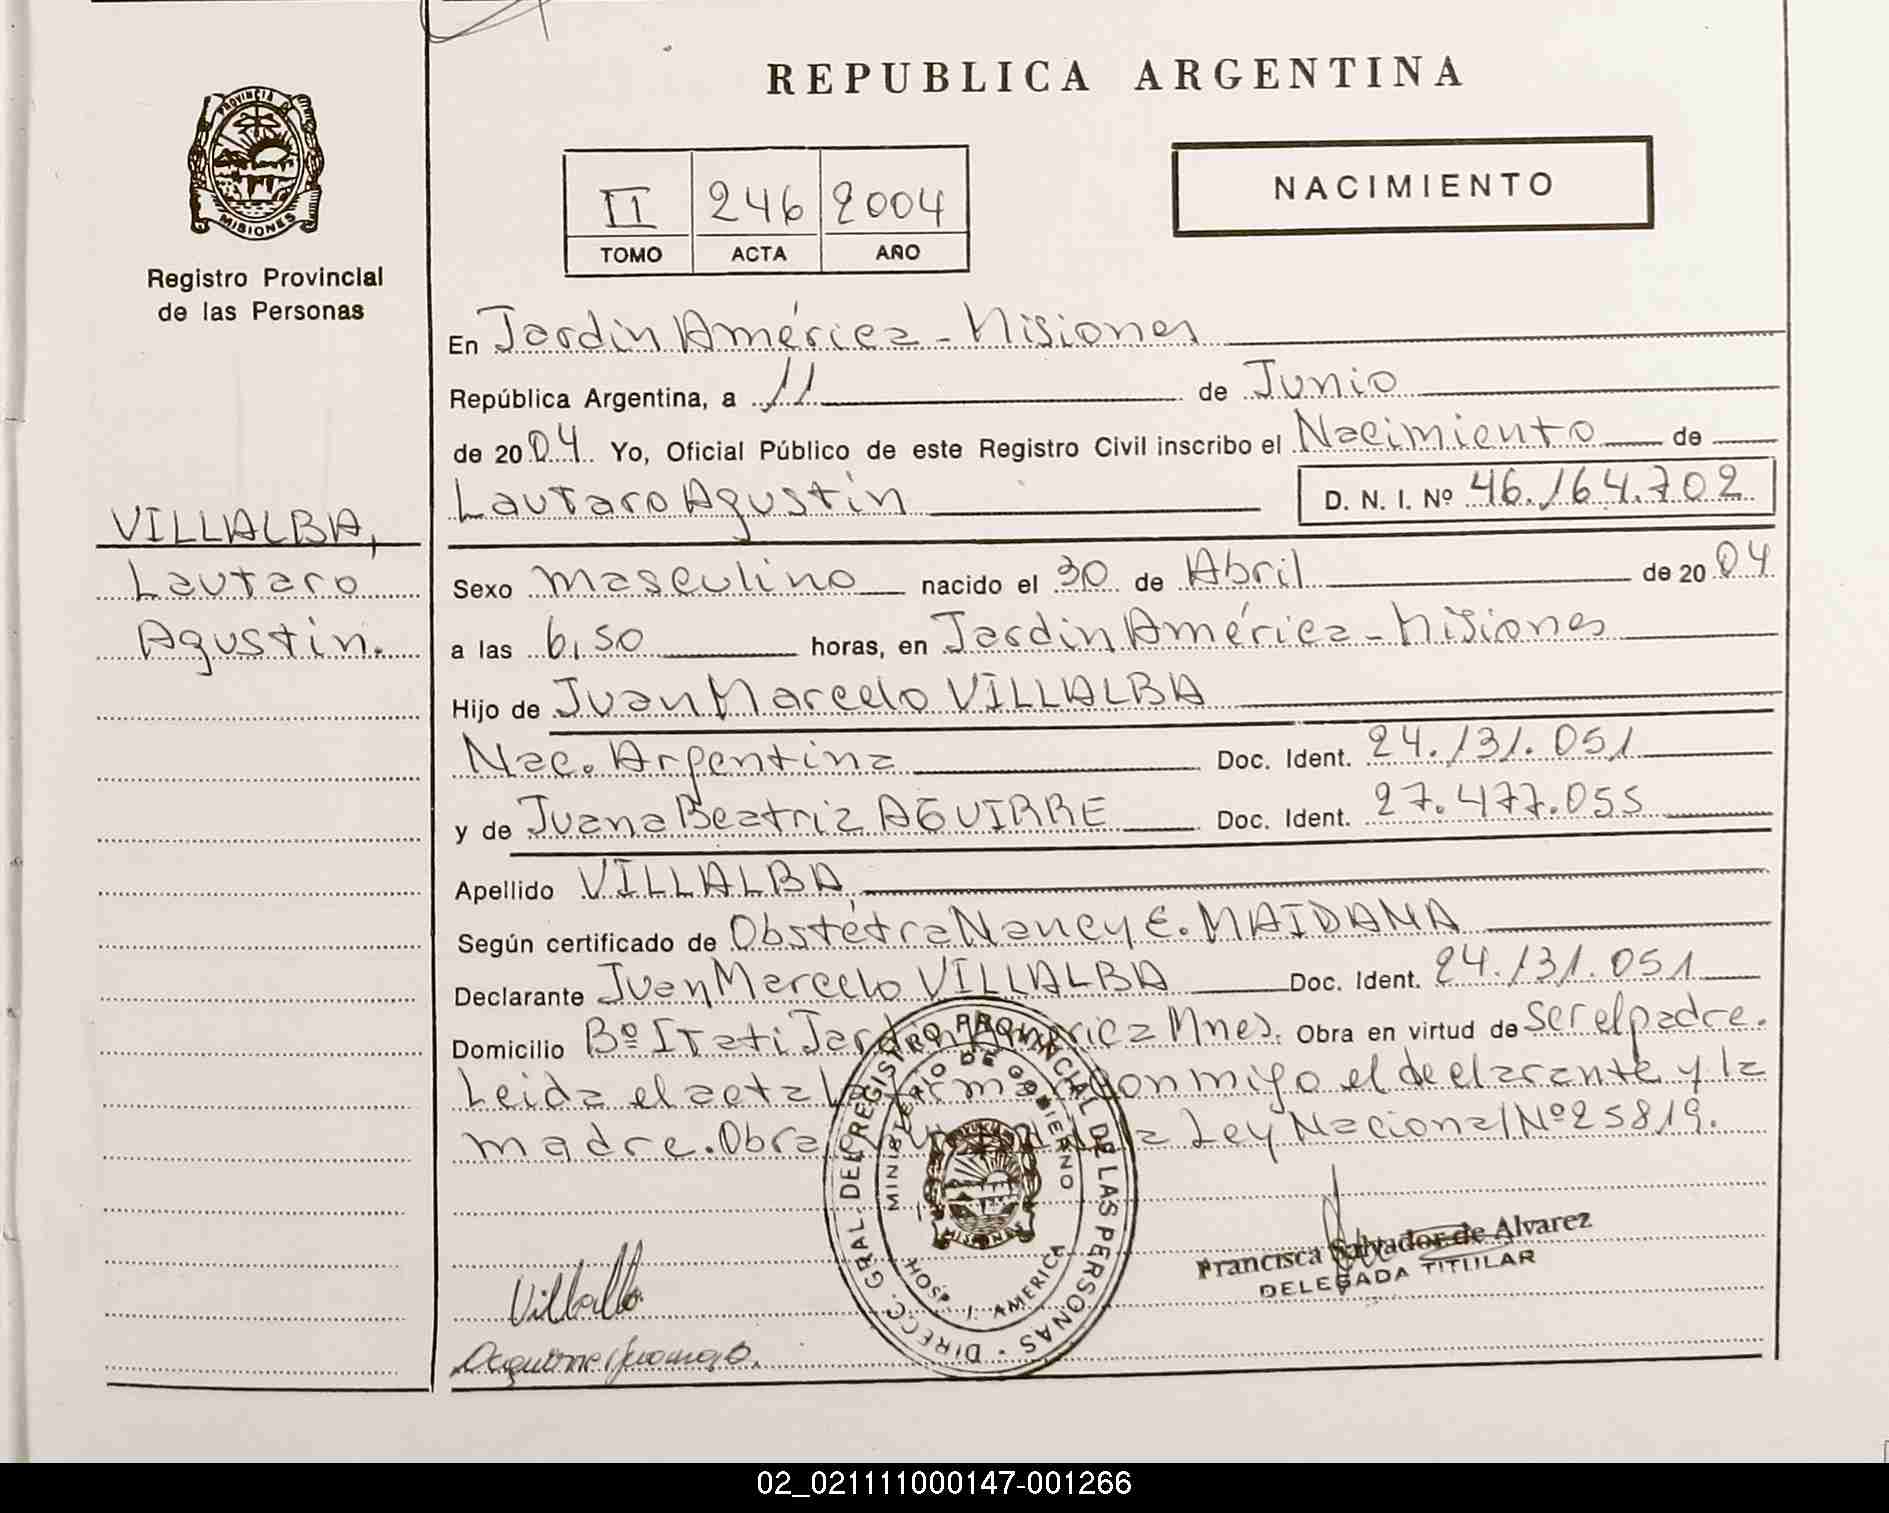 REPUBLICA ARGENTINA
PROVINCIA DE
MISIONES
Registro Provincial
de las Personas
II 246 2004
TOMO ACTA AÑO
NACIMIENTO
VILLALBA,
Lautaro
Agustin.
En Jardin América - Misiones
República Argentina, a 11 de Junio
de 2004 Yo, Oficial Público de este Registro Civil inscribo el Nacimiento de
Lautaro Agustin D. N. I. Nº 46.164.702
Sexo masculino nacido el 30 de Abril de 2004
a las 6,50 horas, en Jardin América - Misiones
Hijo de Juan Marcelo VILLALBA
Nac. Argentina Doc. Ident. 24.131.051
y de Juana Beatriz AGUIRRE Doc. Ident. 27.477.055
Apellido VILLALBA,
Según certificado de Obstétra Nancy E. MAIDANA
Declarante Juan Marcelo VILLALBA Doc. Ident. 24.131.051
Domicilio Bº Itati Jardin América Mnes. Obra en virtud de ser el padre.
Leida el acta la conmigo el declarante y la
madre. Obra Ley Nacional Nº 25819.
DIRECC. GRAL. DEL REGISTRO PROVINCIAL DE LAS PERSONAS
MINISTERIO DE GOBIERNO
HOSP. J. AMERICA
MISIONES
Francisca Salvador de Alvarez
DELEGADA TITULAR
Villalba
02_021111000147-001266